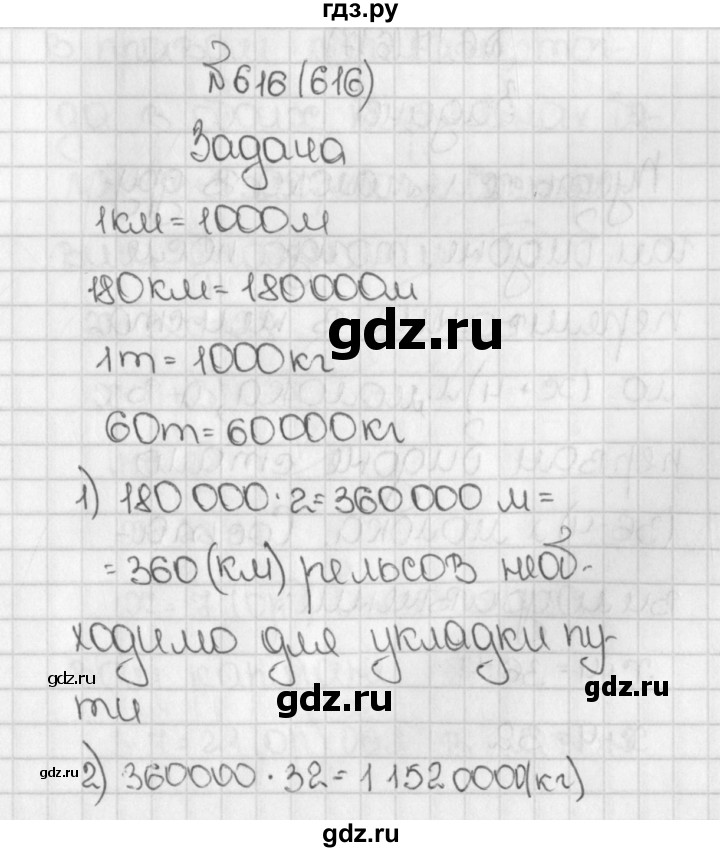 гдз.ру
№616 (616)
Задача
1км = 1000м
180км = 180000м
gdz.ru
1т = 1000кг
60т = 60000кг
1) 180 000 · 2 = 360 000 м =
= 360 (км) рельсов необ-
ходимо для укладки пу-
gdz.ru
gdz.ru
gdz.ru
ти
gdz.ru
2) 360000 · 32 = 11520000(кг)
gdz.ru